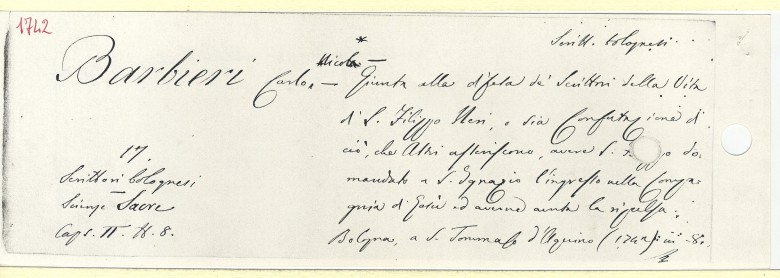 1742
Scritt. bolognesi.
*
Nicola
Barbieri Carlo — Giunta alla difesa de' Scrittori della Vita
di S. Filippo Neri, o sia Confutazione di
ciò, che Altri asseriscono, avere S. Filippo do-
mandato a S. Ignazio l'ingresso nella Compa-
gnia di Gesù ed averne avuta la ripulsa.
Bologna, a S. Tommaso d'Aquino (1742) in 8.
17.
Scrittori bolognesi
Scienze Sacre
Caps. II. N. 8.